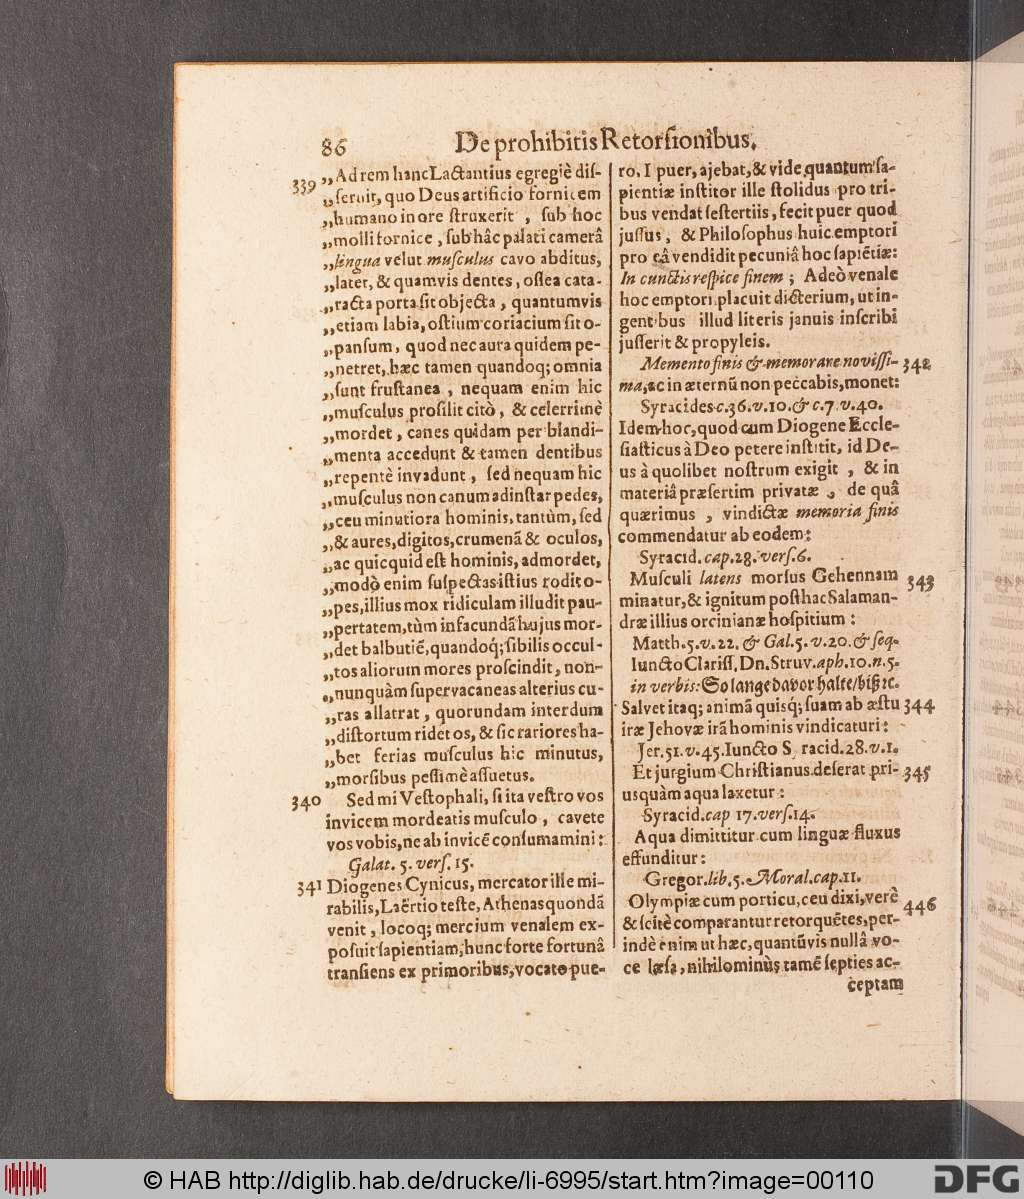 86 De prohibitis Retorsionibus.
339 „Ad rem hanc Lactantius egregiè dis-
„seruit, quo Deus artificio fornicem
„humano in ore struxerit , sub hoc
„molli fornice , sub hâc palati camerâ
„lingua velut musculus cavo abditus,
„later, & quamvis dentes, ossea cata-
„racta porta sit objecta , quantumvis
„etiam labia, ostium coriacium sit o-
„pansum, quod nec aura quidem pe-
„netret, hæc tamen quandoq; omnia
„sunt frustanea , nequam enim hic
„musculus prosilit citò , & celerrimè
„mordet , canes quidam per blandi-
„menta accedunt & tamen dentibus
„repentè invadunt , sed nequam hic
„musculus non canum adinstar pedes,
„ceu minutiora hominis, tantùm, sed
„& aures, digitos, crumenã & oculos,
„ac quicquid est hominis, admordet,
„modò enim suspectas istius rodit o-
„pes, illius mox ridiculam illudit pau-
„pertatem, tùm infacundã hujus mor-
„det balbutiẽ, quandoq́; sibilis occul-
„tos aliorum mores proscindit, non-
„nunquàm supervacaneas alterius cu-
„ras allatrat , quorundam interdum
„distortum ridet os, & sic rariores ha-
„bet ferias musculus hic minutus,
„morsibus pessimè assuetus.
340 Sed mi Vestophali, si ita vestro vos
invicem mordeatis musculo , cavete
vos vobis, ne ab invicẽ consumamini:
Galat. 5. vers. 15.
341 Diogenes Cynicus, mercator ille mi-
rabilis, Laërtio teste, Athenas quondã
venit , locoq; mercium venalem ex-
posuit sapientiam, hunc forte fortunâ
transiens ex primoribus, vocato pue-
ro, I puer, ajebat, & vide quantum sa-
pientiæ institor ille stolidus pro tri-
bus vendat sestertiis, fecit puer quod
jussus, & Philosophus huic emptori
pro eâ vendidit pecuniâ hoc sapiẽtiæ:
In cunctis respice finem ; Adeò venale
hoc emptori placuit dicterium, ut in-
gentibus illud literis januis inscribi
jusserit & propyleis.
Memento finis & memorare novissi- 342
ma, ac in æternũ non peccabis, monet:
Syracides c. 36. v. 10. & c. 7. v. 40.
Idem hoc, quod cum Diogene Eccle-
siasticus à Deo petere instituit, id De-
us à quolibet nostrum exigit , & in
materiâ præsertim privatæ , de quâ
quærimus , vindictæ memoria finis
commendatur ab eodem:
Syracid. cap. 28. vers. 6.
Musculi latens morsus Gehennam 343
minatur, & ignitum posthac Salaman-
dræ illius orcinianæ hospitium :
Matth. 5. v. 22. & Gal. 5. v. 20. & seq.
Iuncto Clariss. Dn. Struv. aph. 10. n. 5.
in verbis: So lange davor halte/ biß ꝛc.
Salvet itaq; animã quisq́; suam ab æstu 344
iræ Jehovæ irã hominis vindicaturi:
Jer. 51. v. 45. Iuncto Syracid. 28. v. 1.
Et jurgium Christianus deserat pri- 345
usquàm aqua laxetur :
Syracid. cap 17. vers. 14.
Aqua dimittitur cum linguæ fluxus
effunditur:
Gregor. lib. 5. Moral. cap. 11.
Olympiæ cum porticu, ceu dixi, verè 446
& scitè comparantur retorquẽtes, per-
indè enim ut hæc, quantũvis nullâ vo-
ce læsa, nihilominùs tamẽ septies ac-
ceptam
© HAB http://diglib.hab.de/drucke/li-6995/start.htm?image=00110
DFG